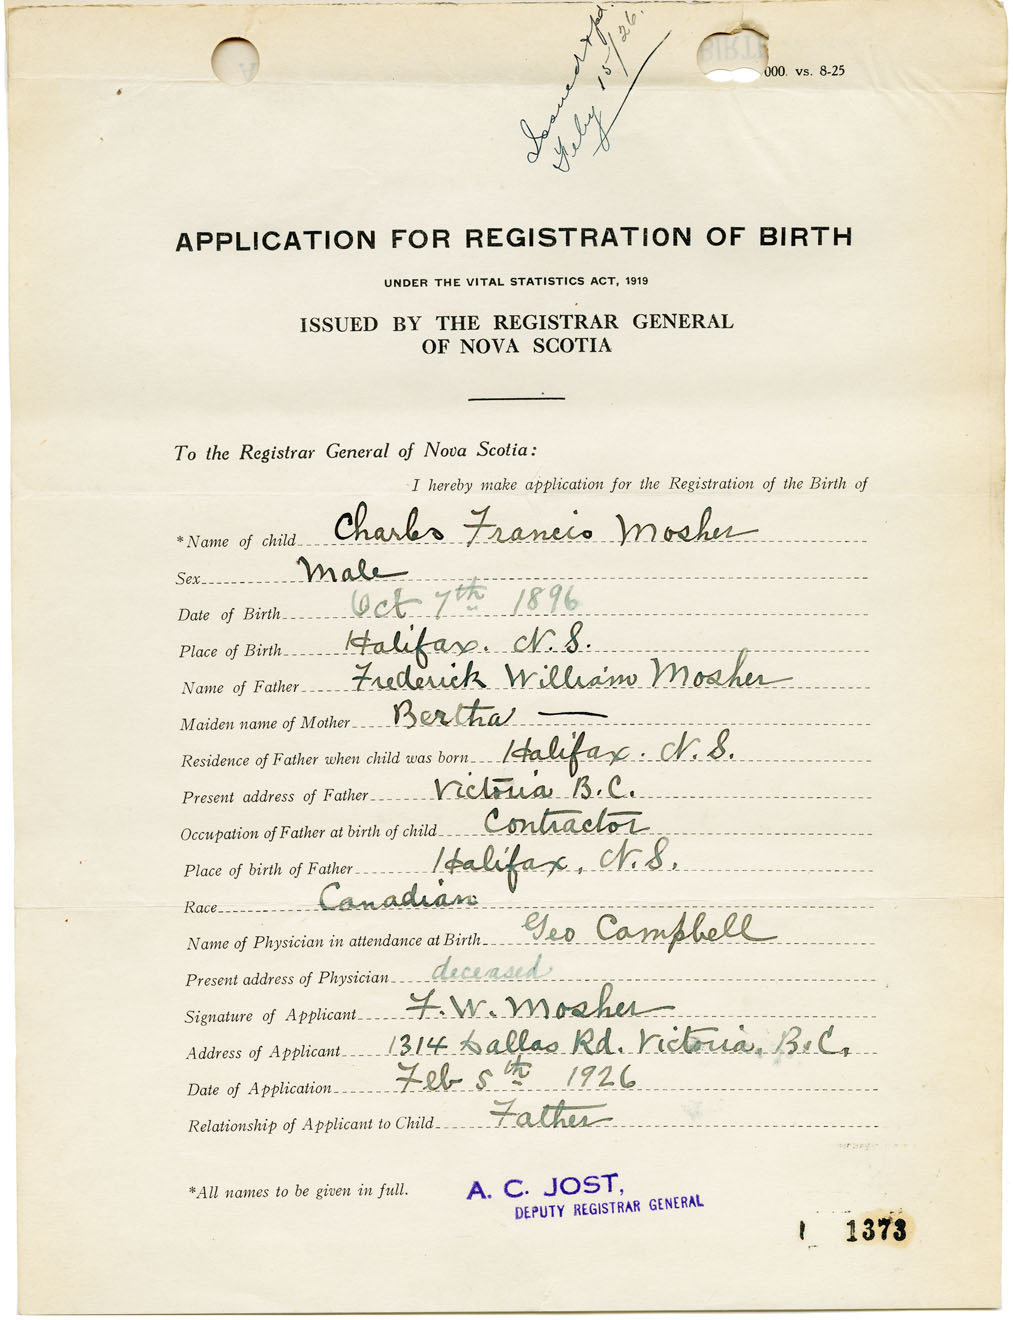 Issued & pd.
Feby 15/26.
000. vs. 8-25
APPLICATION FOR REGISTRATION OF BIRTH
UNDER THE VITAL STATISTICS ACT, 1919
ISSUED BY THE REGISTRAR GENERAL
OF NOVA SCOTIA
To the Registrar General of Nova Scotia:
I hereby make application for the Registration of the Birth of
*Name of child Charles Francis Mosher
Sex Male
Date of Birth Oct 7th 1896
Place of Birth Halifax. N.S.
Name of Father Frederick William Mosher
Maiden name of Mother Bertha —
Residence of Father when child was born Halifax. N.S.
Present address of Father Victoria B.C.
Occupation of Father at birth of child Contractor
Place of birth of Father Halifax, N.S.
Race Canadian
Name of Physician in attendance at Birth Geo Campbell
Present address of Physician deceased
Signature of Applicant F. W. Mosher
Address of Applicant 1314 Dallas Rd. Victoria, B.C.
Date of Application Feb 5th 1926
Relationship of Applicant to Child Father
*All names to be given in full.
A. C. JOST,
DEPUTY REGISTRAR GENERAL
1373